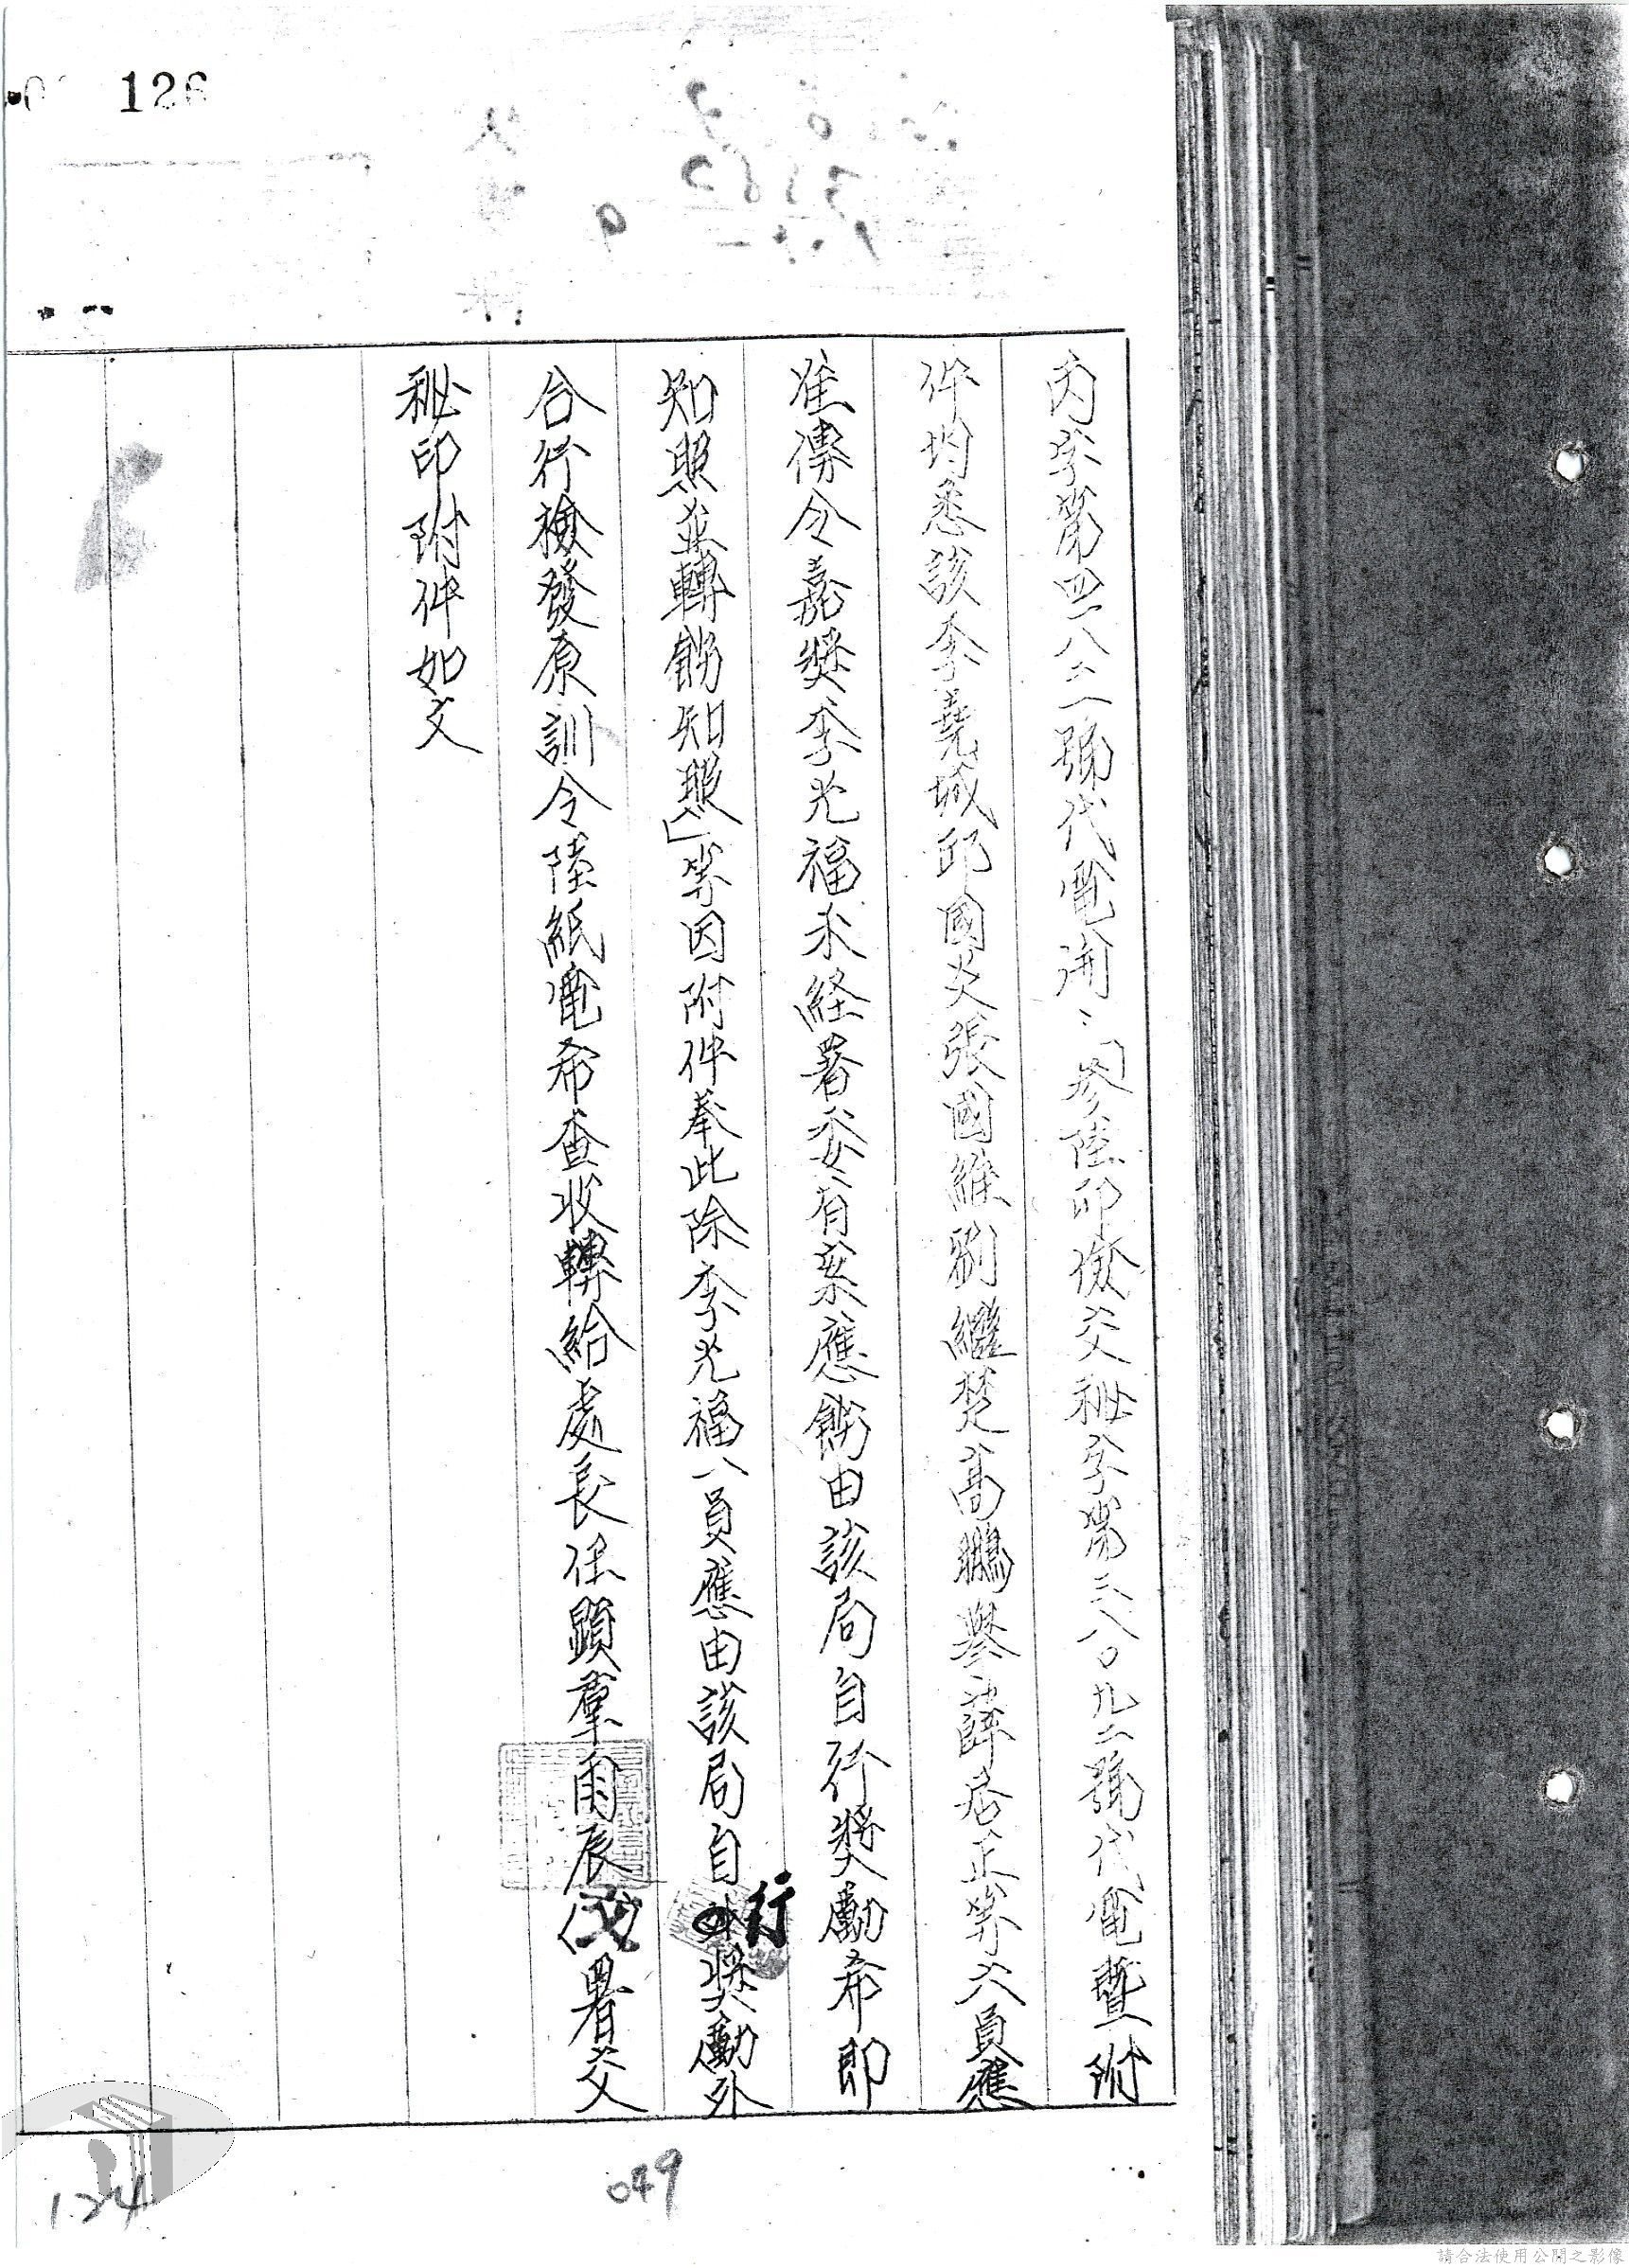 126
丙字第四一八三一號代電開：「參陸卯儉交秘字第三八〇九二號代電暨附
件均悉該李堯城邱國炎張國維劉繼楚高鵬舉薛居正等六員應
准傳令嘉獎李光福未經署委有案應飭由該局自行獎勵希即
知照並轉飭知照」等因附件奉此除李光福一員應由該局自行獎勵外
合行檢發原訓令陸紙電希查收轉給處長任顯羣甪辰署交
秘印附件如文
049
124
請合法使用公開之影像